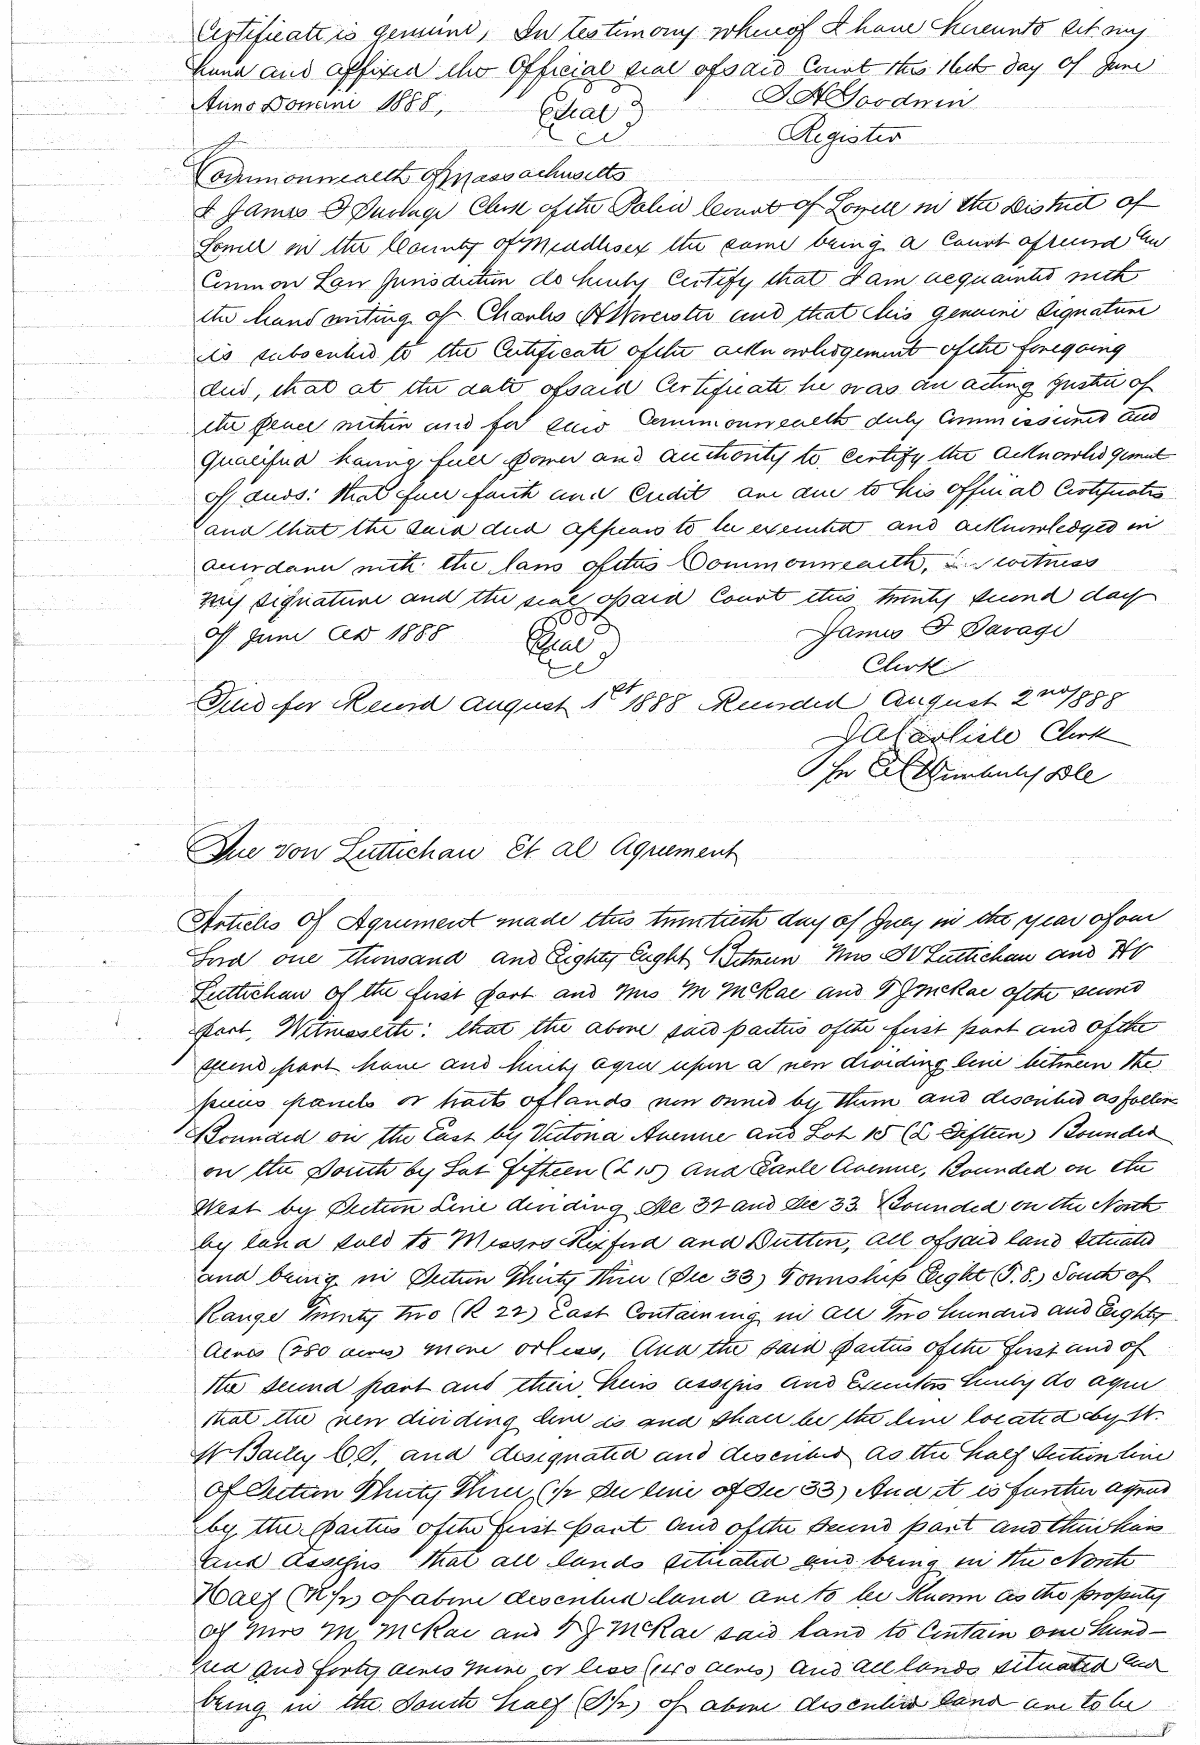 Certificate is genuine, In testimony whereof I have hereunto set my
hand and affixed the Official seal of said Court this day of June
Anno Domini 1888,
Seal
Goodwin
Register
Commonwealth of Massachusetts
I James F Savage Clerk of the Police Court of Lowell in the District of
Lowell in the County of Middlesex the same being a Court of record and
Common Law Jurisdiction do hereby Certify that I am acquainted with
the hand writing of Charles H Worcester and that his genuine Signature
is subscribed to the Certificate of the acknowledgement of the foregoing
deed, that at the date of said Certificate he was an acting Justice of
the peace within and for said Commonwealth duly Commissioned and
Qualified having full power and authority to certify the acknowledgment
of deeds: that full faith and Credit are due to his official Certificates
and that the said deed appears to be executed and acknowledged in
accordance with the laws of this Commonwealth, witness
my signature and the seal of said Court this twenty second day
of June AD 1888
Seal
James F Savage
Clerk
Filed for Record August 1st 1888 Recorded August 2nd 1888
J A Carlisle Clerk
Per Wimberly
Due von Luttichau Et al Agreement
Articles Of Agreement made this twentieth day of July in the year of our
Lord one thousand and Eighty Eight Between Mrs Luttichau and HV
Luttichau of the first part and Mrs M McRae and T J McRae of the second
part, Witnesseth: that the above said parties of the first part and of the
second part have and hereby agree upon a new dividing line between the
pieces parcels or tracts of lands now owned by them and described as follows
Bounded on the East by Victoria Avenue and Lot 15 (L Fifteen) Bounded
on the South by Lot fifteen (L 15) and Earle Avenue, Bounded on the
West by Section Line dividing Sec 32 and Sec 33 Bounded on the North
by land sold to Messrs Rexford and Dutton, all of said land situated
and being in Section Thirty three (Sec 33) Township Eight (T.8.) South of
Range Twenty two (R 22) East Containing in all Two hundred and Eighty
Acres (280 acres) more or less, And the said parties of the first and of
the second part and their heirs assigns and Executors hereby do agree
that the new dividing line is and shall be the line located by W.
W Bailey C.S. and designated and described as the half Section line
of Section Thirty Three (1/2 Sec line of Sec 33) And it is further agreed
by the parties of the first part and of the second part and their heirs
and assigns that all lands situated and being in the North
Half (N/2) of above described land are to be Known as the property
of Mrs M McRae and T J McRae said land to Contain one hund-
red and forty acres more or less (140 acres) and all lands situated and
being in the South half (S/2) of above described land are to be